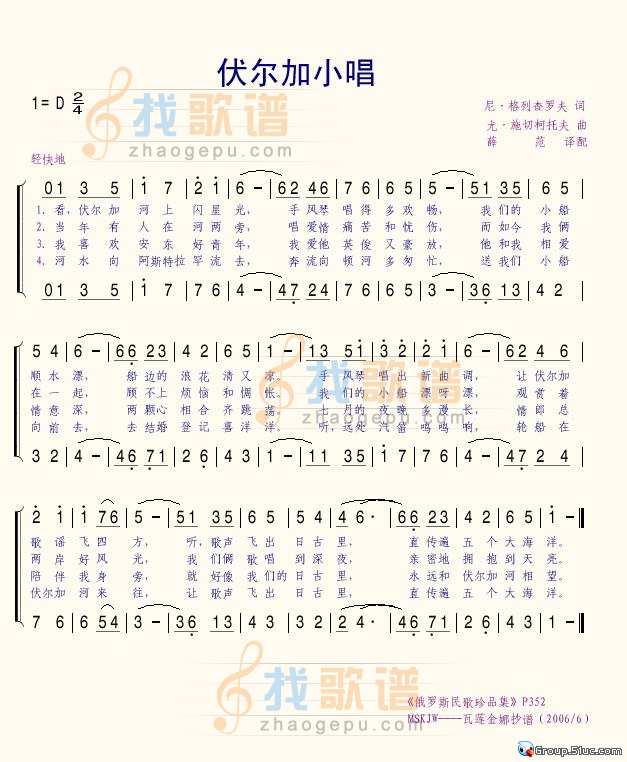 伏尔加小唱
1= D 2/4
找歌谱
zhaogepu.com
尼·格列查罗夫 词
尤·施切柯托夫 曲
薛 范 译配
轻快地
01 3 5 | 1 7 | 2 1 | 6 - | 62 46 | 7 6 | 7 6 | 5 - | 5 - | 51 35 | 6 5
1. 看,伏尔加 河上 闪星光, 手风琴 唱得 多欢畅, 我们的 小船
2. 当年有 人在 河两旁, 唱爱情 痛苦 和忧伤, 而如今 我俩
3. 我喜欢 安东 好青年, 我爱他 英俊 又豪放, 他和我 相爱
4. 河水向 阿斯特拉 罕流去, 奔流向 顿河 多匆忙, 送我们 小船
01 3 5 | 1 7 | 7 6 | 4 - | 47 24 | 7 6 | 7 6 | 3 - | 3 - | 36 13 | 4 2
5 4 | 6 - | 66 23 | 4 2 | 6 5 | 1 - | 13 51 | 3 2 | 2 1 | 6 - | 62 4 6
顺水漂, 船边的 浪花 清又凉。 手风琴 唱出 新曲调, 让伏尔加
在一起, 顾不上 烦恼 和惆怅。 我们的 小船 漂呀漂, 观赏着
情意深, 两颗心 相合 齐跳荡。 七月的 夜晚 多漫长, 情郎总
向前去, 去结婚 登记 喜洋洋。 听,远处 汽笛 呜呜响, 轮船在
3 2 | 4 - | 46 71 | 2 6 | 4 3 | 1 - | 11 35 | 7 6 | 7 6 | 4 - | 47 2 4
找歌谱
zhaogepu.com
2 1 | 1 76 | 5 - | 51 35 | 5 4 | 5 4 | 4 6· | 66 23 | 4 2 | 6 5 | 1 -
歌谣飞四方, 听,歌声 飞出 日古里, 直传遍 五个 大海洋。
两岸好风光, 我们俩 歌唱 到深夜, 亲密地 拥抱 到天亮。
陪伴我身旁, 就好像 我们的 日古里, 永远和 伏尔加 河相望。
伏尔加 河来往, 让歌声 飞出 日古里, 直传遍 五个 大海洋。
7 6 | 6 54 | 3 - | 36 13 | 3 2 | 3 2 | 2 4· | 46 71 | 2 6 | 4 3 | 1 -
找歌谱
zhaogepu.com
《俄罗斯民歌珍品集》P352
MSKJW----瓦莲金娜抄谱（2006/6）
Group.51uc.com